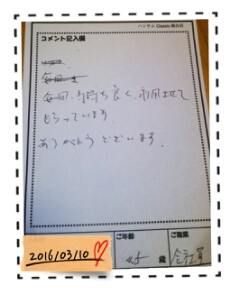 ハンサム Classic 横浜店
コメント記入欄
毎回
毎回、気持ち良く、利用させて
もらっています。
ありがとうございます。
2016/03/10
ご年齢
45 歳
ご職業
会社員